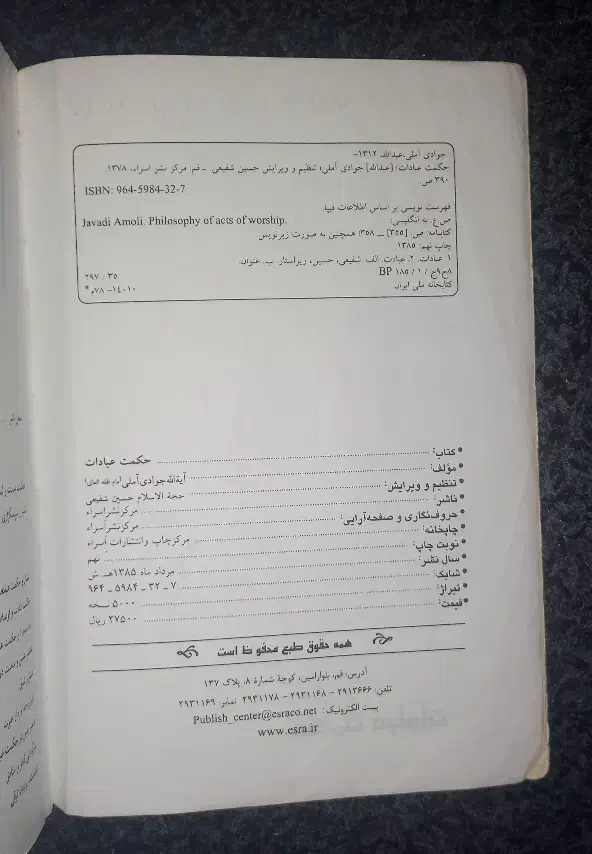 جوادی آملی، عبدالله، ۱۳۱۲-
حکمت عبادات/ [عبدالله] جوادی آملی؛ تنظیم و ویرایش حسین شفیعی. ـ قم: مرکز نشر اسراء، ۱۳۷۸.
۳۹۰ ص.
ISBN: 964-5984-32-7
فهرست نویسی بر اساس اطلاعات فیپا.
ص.ع. به انگلیسی:
Javadi Amoli. Philosophy of acts of worship.
کتابنامه: ص. [۳۵۵] ـ ۳۵۸؛ همچنین به صورت زیرنویس
چاپ نهم: ۱۳۸۵
۱. عبادات. ۲. عبادت. الف. شفیعی، حسین، ویراستار. ب. عنوان.
۸ح۹ج / ۱ / ۱۸۵ BP ۲۹۷ / ۳۵
کتابخانه ملی ایران ۱۴۰۱۰-۷۸م*
•کتاب: حکمت عبادات
•مؤلف: آیةالله جوادی آملی
•تنظیم و ویرایش: حجة الاسلام حسین شفیعی
•ناشر: مرکز نشر اسراء
•حروف‌نگاری و صفحه‌آرایی: مرکز نشر اسراء
•چاپخانه: مرکز چاپ و انتشارات اسراء
•نوبت چاپ: نهم
•سال نشر: مرداد ماه ۱۳۸۵هـ. ش
•شابک: ۷ ـ ۳۲ ـ ۵۹۸۴ ـ ۹۶۴
•تیراژ: ۵۰۰۰ نسخه
•قیمت: ۲۷۵۰۰ ریال
همه حقوق طبع محفوظ است
آدرس: قم، بلوارامین، کوچهٔ شمارهٔ ۸، پلاک ۱۳۷
تلفن: ۲۹۱۲۶۶۶ – ۲۹۳۱۱۶۸ – ۲۹۳۱۱۷۸ نمابر: ۲۹۳۱۱۶۹
پست الکترونیک: Publish_center@esraco.net
www.esra.ir